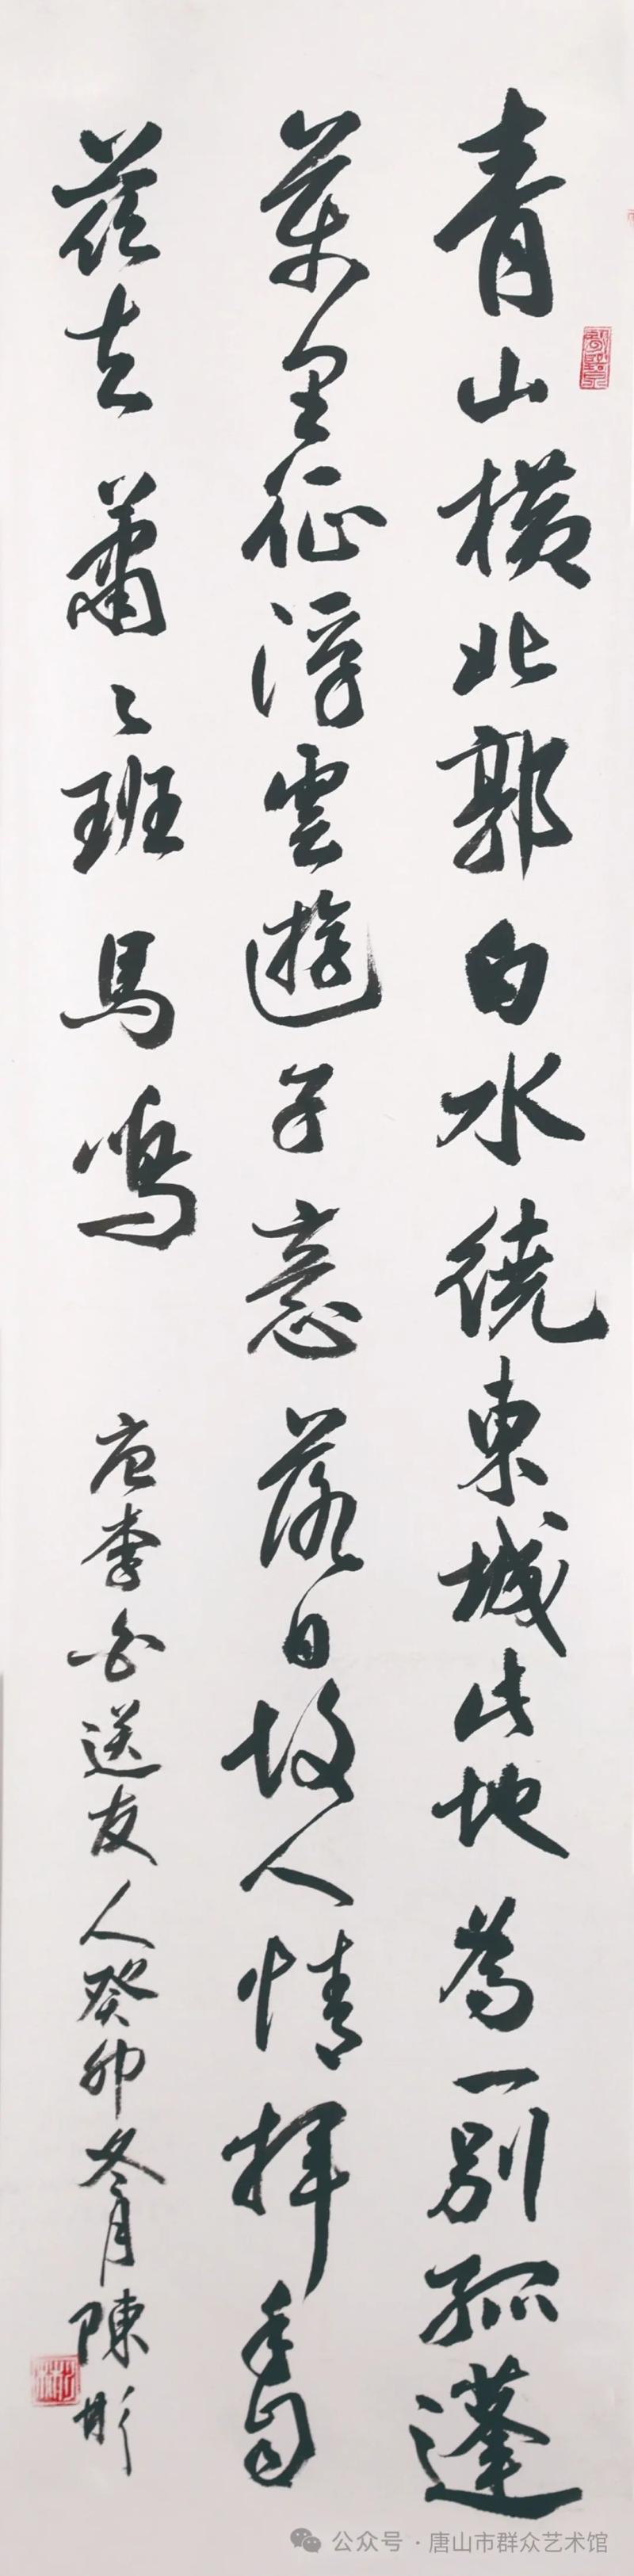 青山橫北郭白水繞東城此地為一別孤蓬
萬里征浮雲遊子意落日故人情揮手自
茲去蕭々班馬鳴
唐李白送友人癸卯冬月陳彬
公众号 · 唐山市群众艺术馆